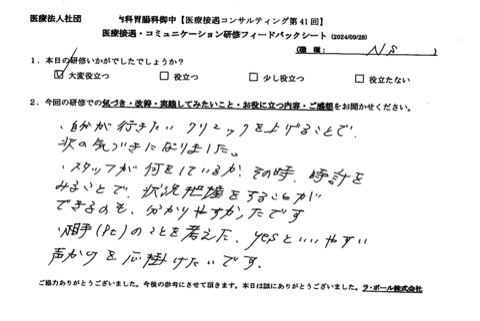 医療法人社団 内科胃腸科御中【医療接遇コンサルティング第41回】
医療接遇・コミュニケーション研修フィードバックシート (2024/09/28)
(職種: NS )
1．本日の研修いかがでしたでしょうか？
☑ 大変役立つ □ 役立つ □ 少し役立つ □ 役立たない
2．今回の研修での気づき・改善・実践してみたいこと・お役に立つ内容・ご感想をお聞かせください。
・自分が行きたい クリニックを上げることで、
次の気づきになりました。
・スタッフが何をしているか、その時、時計を
みることで、状況把握をすることが
できるのも、分かりやすかったです
・相手(Pt)のことを考えた、yesといいやすい
声かけを心掛けたいです。
ご協力ありがとうございました。今後の参考にさせて頂きます。本日は誠にありがとうございました。ラ・ポール株式会社